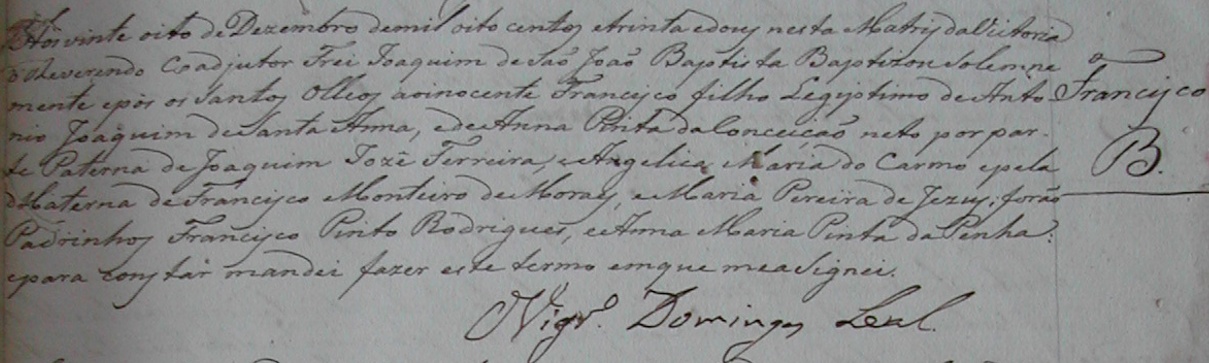 Aos vinte oito de Dezembro de mil oito centos e trinta e dous nesta Matris da Victoria
o Reverendo Coadjutor Frei Joaquim de São João Baptista Baptizou Solemne
mente e pôs os Santos Olleos ao inocente Francisco filho Legistimo de Anto
nio Joaquim de Santa Anna, e de Anna Pinta da Conceição neto por par-
te Paterna de Joaquim Jozê Ferreira, e Angelica Maria do Carmo e pela
Materna de Francisco Monteiro de Moraes, e Maria Pereira de Jezus; forão
Padrinhos Francisco Pinto Rodrigues, e Anna Maria Pinta da Penha:
e para constar mandei fazer este termo em que me asignei.
Vigr.º Domingos Leal.
Francisco
B.